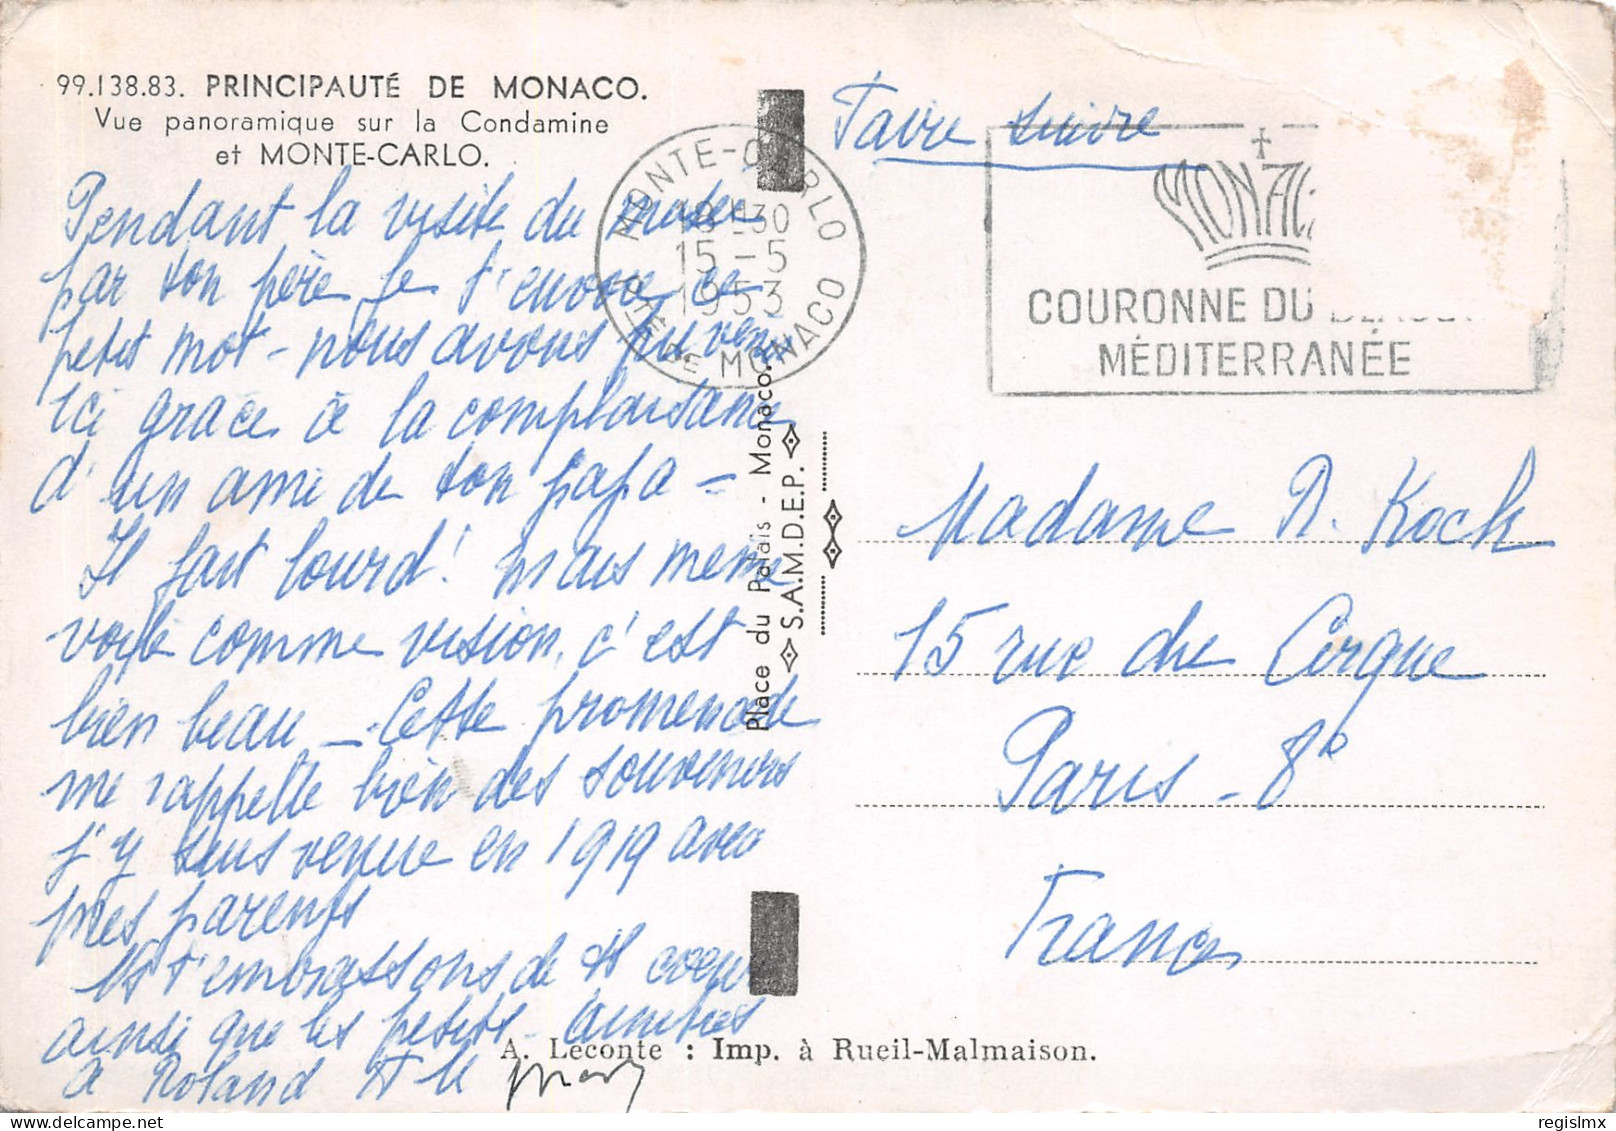 99.138.83. PRINCIPAUTÉ DE MONACO.
Vue panoramique sur la Condamine
et MONTE-CARLO.
Pendant la visite du musée
par ton père je t'envoie ce
petit mot - nous avons pu venir
ici grâce à la complaisance
d'un ami de ton papa -
Il fait lourd! mais même
voilé comme vision, c'est
bien beau - Cette promenade
me rappelle bien des souvenirs
j'y suis venue en 1919 avec
mes parents
Ns t'embrassons de tt coeur
ainsi que les petits. Amitiés
à Roland
MONTE-CARLO
18H30
15-5
1953
PTÉ DE MONACO
Faire suivre
MONAC
COURONNE DU
MÉDITERRANÉE
Place du Palais - Monaco.
S.A.M.D.E.P.
Madame R. Koch
15 rue du Cirque
Paris - 8e
France
A. Leconte : Imp. à Rueil-Malmaison.
regislmx